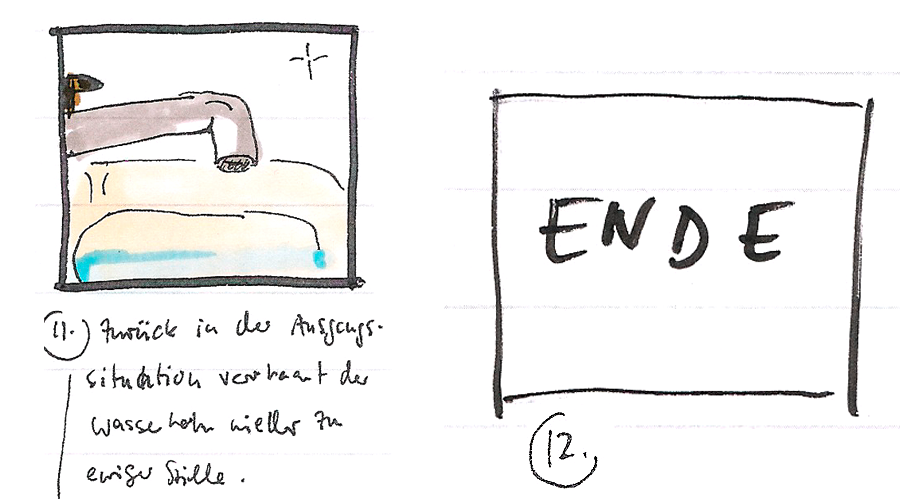 11.) Zurück in der Ausgangs-
situation verharrt der
Wasserhahn wieder zu
ewiger Stille.
ENDE
12.